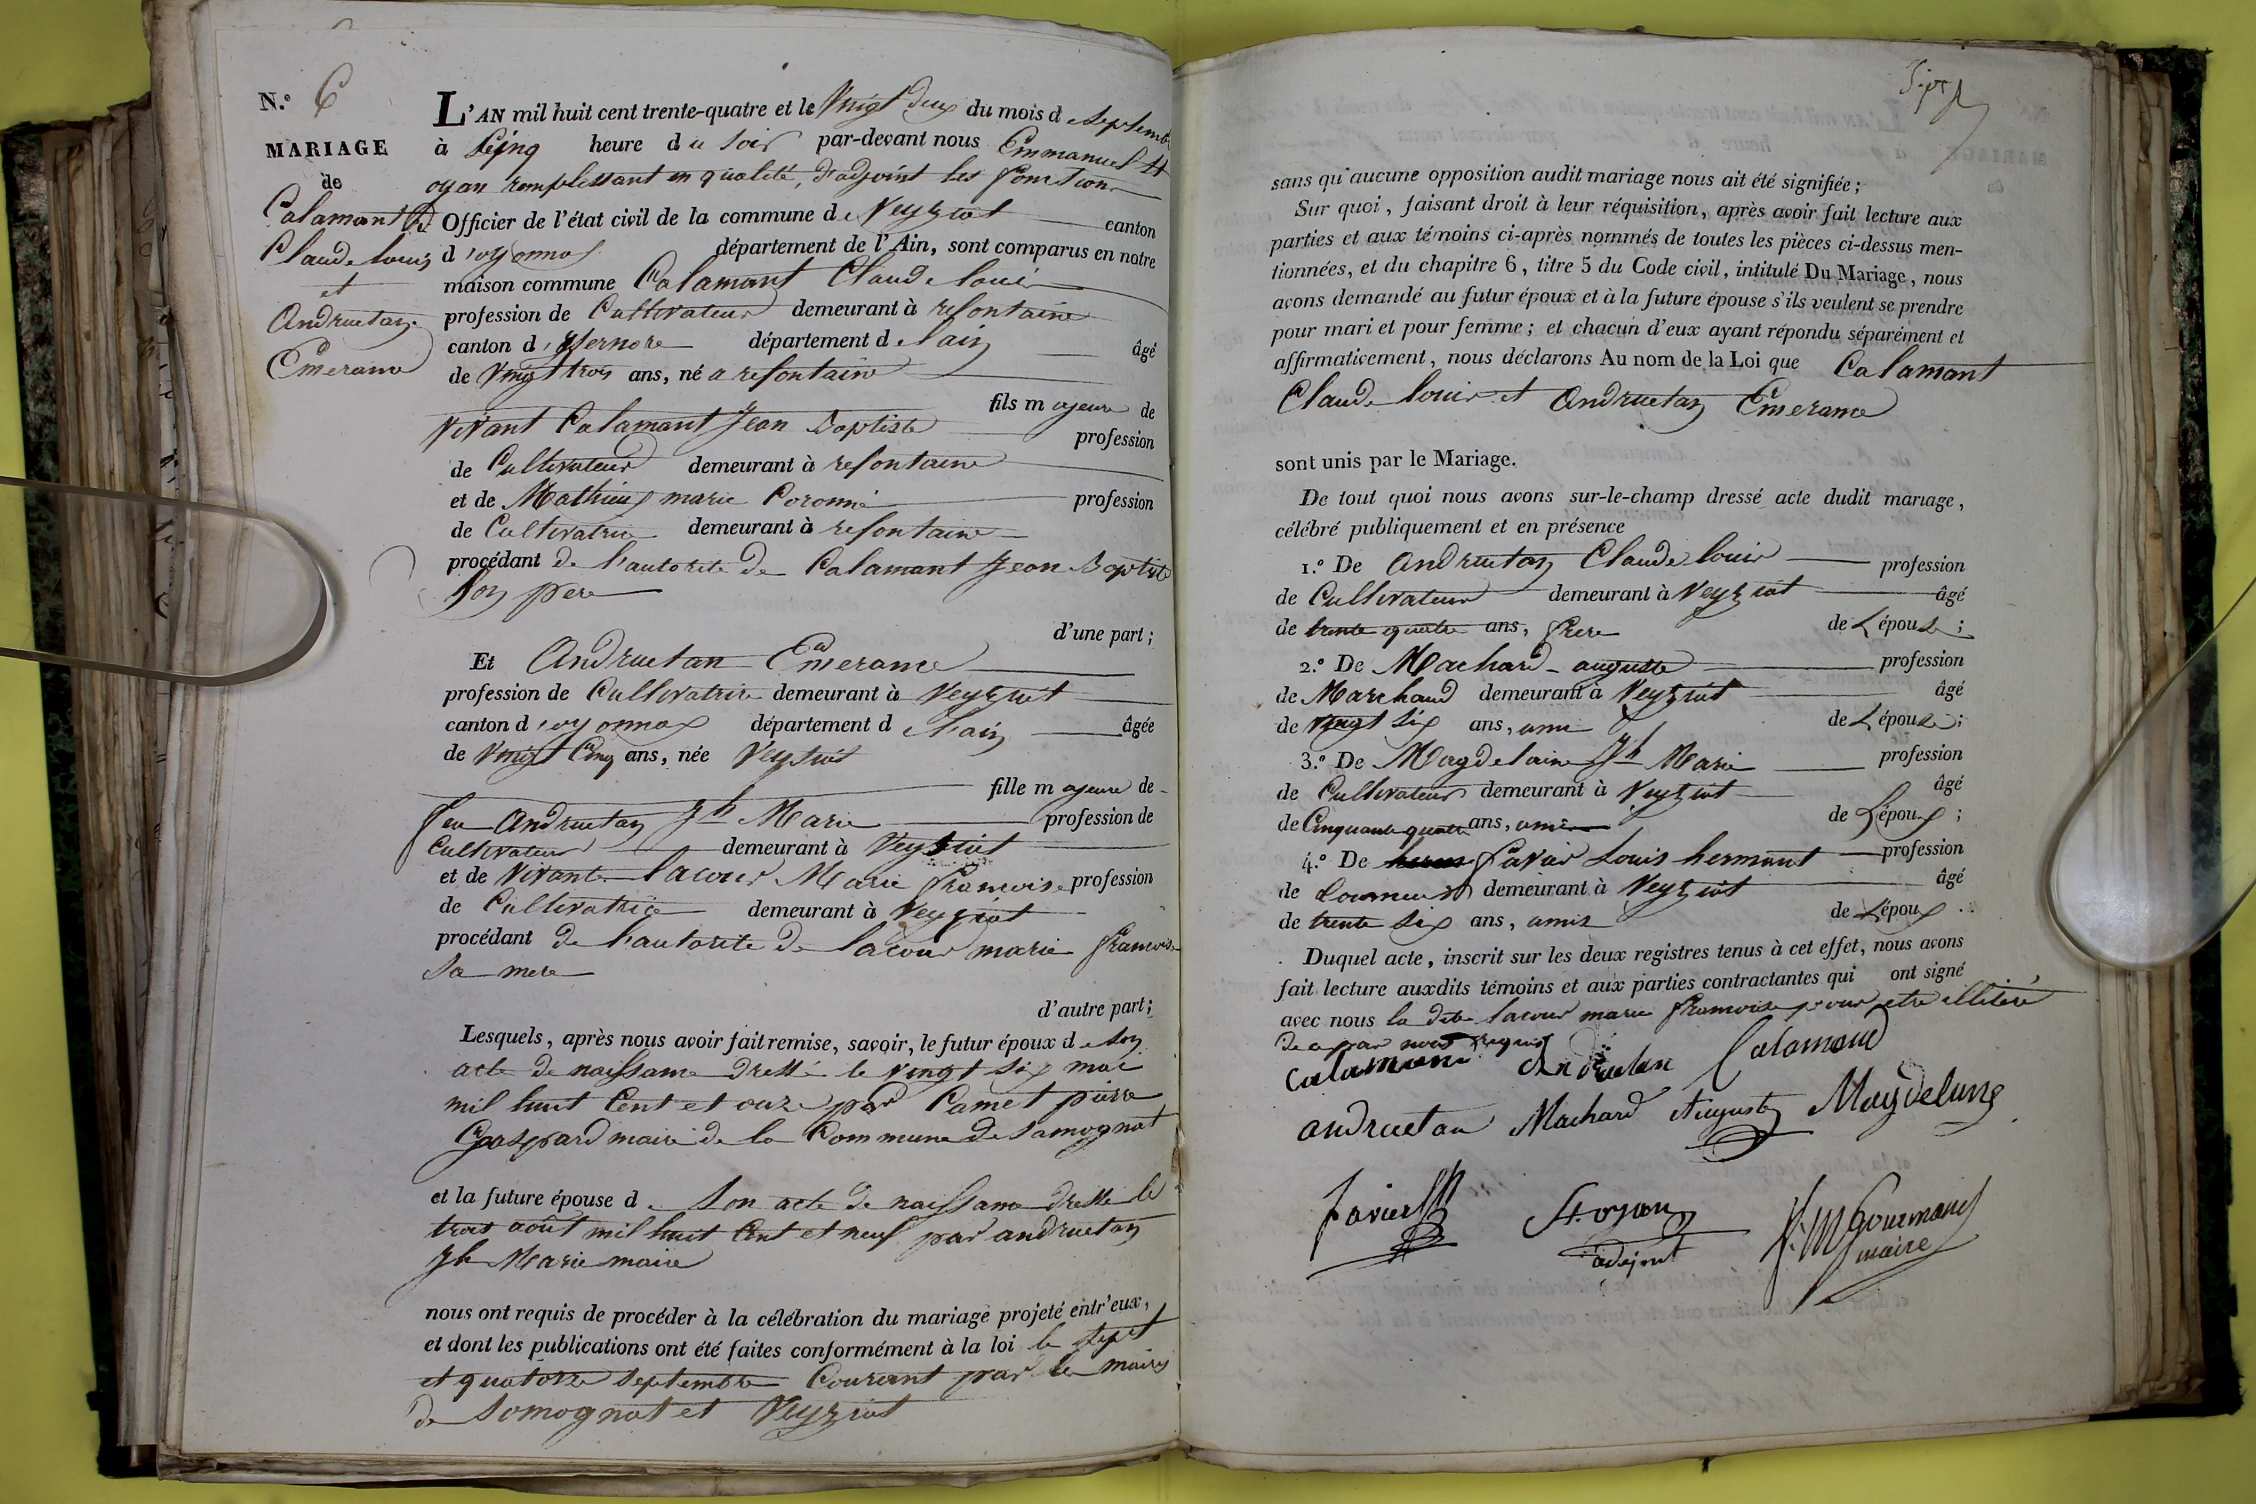 N.° 6
MARIAGE
de
Calamant
Claude Louis
et
Andruetan
Emerance
L'AN mil huit cent trente-quatre et le Vingt deux du mois de septembre
à Cinq heure du soir par-devant nous Emmanuel St
oyan remplissant en qualité, d'adjoint les fonctions
Officier de l'état civil de la commune de Veyziat canton
d'oyonnax département de l'Ain, sont comparus en notre
maison commune Calamant Claude Louis
profession de Cultivateur demeurant à refontaine
canton d'isernore département de l'ain âgé
de Vingt trois ans, né a refontaine
fils majeur de
vivant Calamant Jean Baptiste profession
de Cultivateur demeurant à refontaine
et de Mathieux marie Coronné profession
de Cultivatrice demeurant à refontaine
procédant de l'autorité de Calamant Jean Baptiste
son pere
d'une part;
Et Andruetan Emerance
profession de Cultivatrice demeurant à Veyziat
canton d'oyonnax département de l'ain âgée
de Vingt Cinq ans, née Veyziat
fille majeure de
feu Andruetan Jh Marie profession de
Cultivateur demeurant à Veyziat
et de Vivante Lacour Marie francoise profession
de Cultivatrice demeurant à Veyziat
procédant de l'autorité de Lacour marie francoise
sa mere
d'autre part;
Lesquels, après nous avoir fait remise, savoir, le futur époux de son
acte de naissance dressé le vingt six mai
mil huit Cent et onze par Camet pierre
Gaspard maire de la Commune de Samognat
et la future épouse de son acte de naissance dressé le
trois août mil huit Cent et neuf par andruetan
Jh Marie maire
nous ont requis de procéder à la célébration du mariage projeté entr'eux,
et dont les publications ont été faites conformément à la loi le sept
et quatorze septembre Courant par les maires
de Somognat et Veyziat
sept
sans qu'aucune opposition audit mariage nous ait été signifiée;
Sur quoi, faisant droit à leur réquisition, après avoir fait lecture aux
parties et aux témoins ci-après nommés de toutes les pièces ci-dessus men-
tionnées, et du chapitre 6, titre 5 du Code civil, intitulé Du Mariage, nous
avons demandé au futur époux et à la future épouse s'ils veulent se prendre
pour mari et pour femme; et chacun d'eux ayant répondu séparément et
affirmativement, nous déclarons Au nom de la Loi que Calamant
Claude Louis et Andruetan Emerance
sont unis par le Mariage.
De tout quoi nous avons sur-le-champ dressé acte dudit mariage,
célébré publiquement et en présence
1.° De Andruetan Claude Louis profession
de Cultivateur demeurant à Veyziat âgé
de trente quatre ans, frere de L'épouse;
2.° De Machard auguste profession
de Marchand demeurant à Veyziat âgé
de vingt six ans, ami de L'épouse;
3.° De Magdelaine Jh Marie profession
de Cultivateur demeurant à Veyziat âgé
de Cinquante quatre ans, ami de L'époux;
4.° De favier Louis hermant profession
de tourneur demeurant à Veyziat âgé
de trente six ans, amis de L'époux
Duquel acte, inscrit sur les deux registres tenus à cet effet, nous avons
fait lecture auxdits témoins et aux parties contractantes qui ont signé
avec nous la dite Lacour marie francoise pour etre illiteré
de ce par nous requis
Calamant Andruetan Calamand
andruetan Machard Auguste Magdelaine
favier St. oyan J. M. Gourmand
adejoint maire